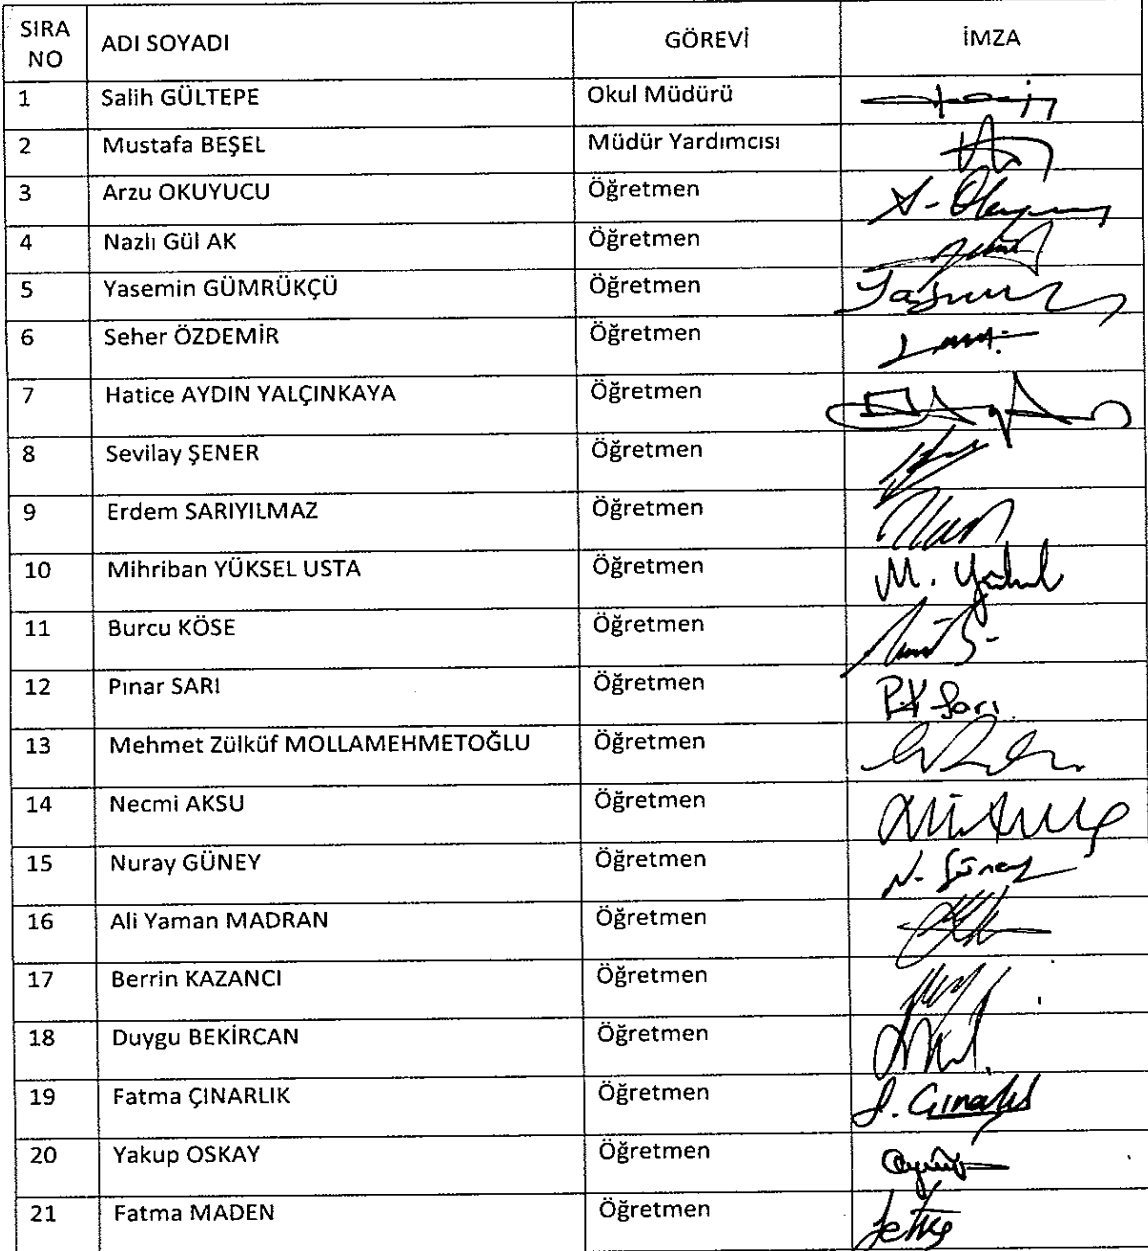 SIRA NO ADI SOYADI GÖREVİ İMZA
1 Salih GÜLTEPE Okul Müdürü
2 Mustafa BEŞEL Müdür Yardımcısı
3 Arzu OKUYUCU Öğretmen
4 Nazlı Gül AK Öğretmen
5 Yasemin GÜMRÜKÇÜ Öğretmen
6 Seher ÖZDEMİR Öğretmen
7 Hatice AYDIN YALÇINKAYA Öğretmen
8 Sevilay ŞENER Öğretmen
9 Erdem SARIYILMAZ Öğretmen
10 Mihriban YÜKSEL USTA Öğretmen
11 Burcu KÖSE Öğretmen
12 Pınar SARI Öğretmen
13 Mehmet Zülküf MOLLAMEHMETOĞLU Öğretmen
14 Necmi AKSU Öğretmen
15 Nuray GÜNEY Öğretmen N. Güney
16 Ali Yaman MADRAN Öğretmen
17 Berrin KAZANCI Öğretmen
18 Duygu BEKİRCAN Öğretmen
19 Fatma ÇINARLIK Öğretmen
20 Yakup OSKAY Öğretmen
21 Fatma MADEN Öğretmen